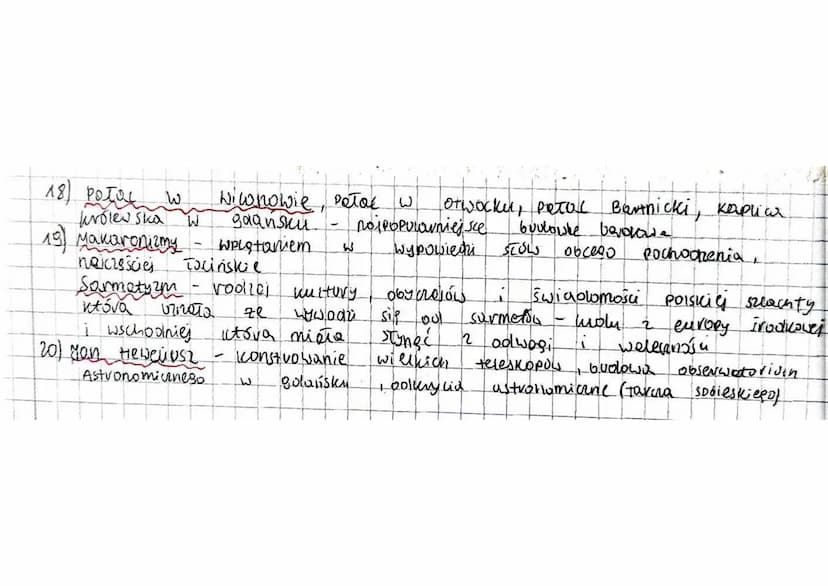 18) Pałac w Wilanowie, Pałac w Otwocku, Pałac Bartnicki, Kaplica
królewska w gdańsku - najpopularniejsze budowle barokowe
19) Makaronizmy - wplątaniem w wypowiedzi słów obcego pochodzenia,
najczęściej łacińskie
Sarmatyzm - rodzaj kultury, obyczajów i świadomości polskiej szlachty
która wzięła ze wywodzi się od sarmatów - ludu z europy środkowej
i wschodniej która miała słynąć z odwagi i waleczności
20) Jan Heweliusz - konstruowanie wielkich teleskopów, budowa obserwatorium
Astronomicznego w gdańsku, odkrycia astronomiczne (tarcza sobieskiego)